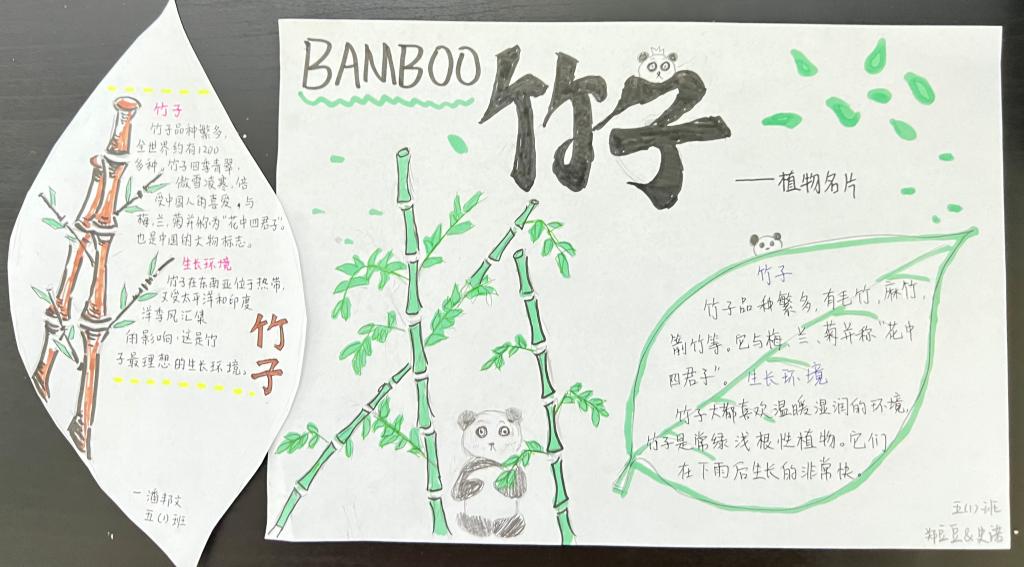 竹子
竹子品种繁多，
全世界约有1200
多种。竹子四季青翠，
傲雪凌寒，倍
受中国人的喜爱，与
梅，兰，菊并称为“花中四君子”。
也是中国的文物标志。
生长环境
竹子在东南亚位于热带，
又受太平洋和印度
洋季风汇集
用影响，这是竹
子最理想的生长环境。
竹子
一潘邦文
五(1)班
BAMBOO
竹子
——植物名片
竹子
竹子品种繁多，有毛竹，麻竹，
箭竹等。它与梅、兰、菊并称“花中
四君子”。 生长环境
竹子大都喜欢温暖湿润的环境，
竹子是常绿浅根性植物。它们
在下雨后生长的非常快。
五(1)班
郑豆豆&史诺